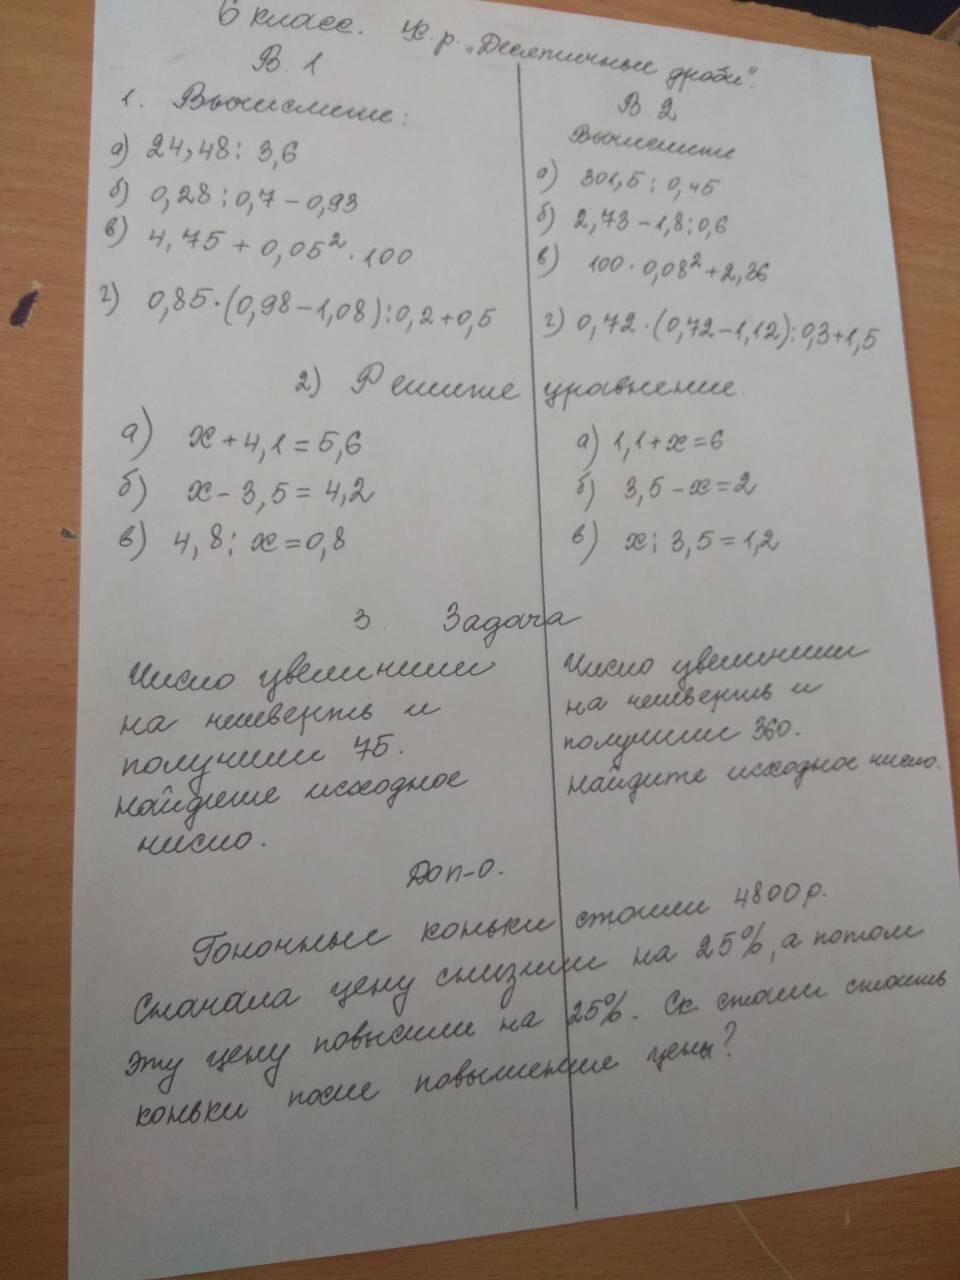 6 класс. К.р. „Десятичные дроби".
В. 1
1. Вычислите:
а) 24,48 : 3,6
б) 0,28 : 0,7 - 0,93
в) 4,75 + 0,05² · 100
г) 0,85 · (0,98 - 1,08) : 0,2 + 0,5
В 2
Вычислите
а) 301,5 : 0,45
б) 2,73 - 1,8 : 0,6
в) 100 · 0,08² + 2,36
г) 0,72 · (0,72 - 1,12) : 0,3 + 1,5
2) Решите уравнение.
а) x + 4,1 = 5,6
б) x - 3,5 = 4,2
в) 4,8 : x = 0,8
а) 1,1 + x = 6
б) 3,5 - x = 2
в) x : 3,5 = 1,2
3. Задача
Число увеличили
на четверть и
получили 75.
Найдите исходное
число.
Число увеличили
на четверть и
получили 360.
Найдите исходное число.
Доп-о.
Гоночные коньки стоили 4800 р.
Сначала цену снизили на 25%, а потом
эту цену повысили на 25%. Ск. стали стоить
коньки после повышения цены?